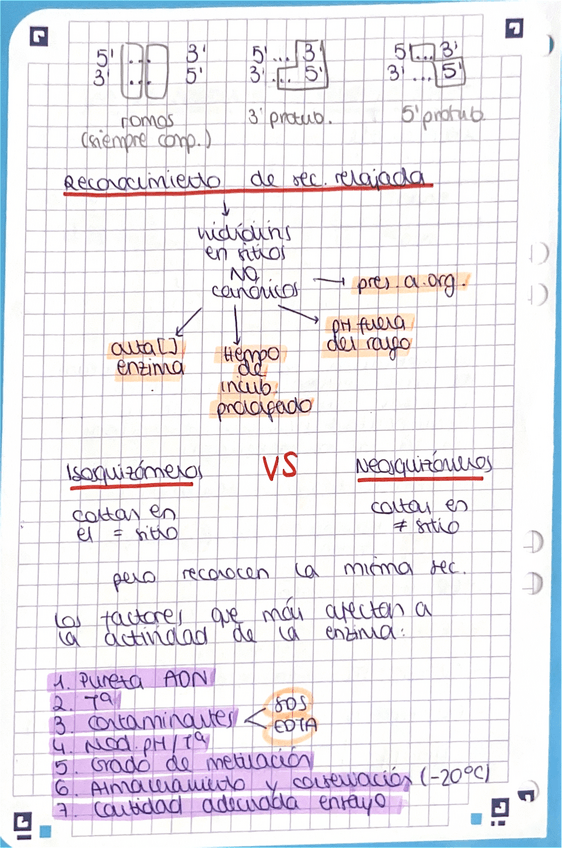 5' .. 3' 5' ... 3' 5' ... 3'
3' .. 5' 3' ... 5' 3' ... 5'
romos 3' protub. 5' protub
(siempre comp.)
Reconocimiento de sec. relajada
en sitios
NO
canónicos → pres. a. org.
alta [ ] tiempo pH fuera
enzima de del rango
incub.
prolongado
Isoquizómeros VS Neosquizómeros
cortar en cortar en
el = sitio ≠ sitio
pero reconocen la misma sec.
Los factores que más afectan a
la actividad de la enzima:
1. Pureza ADN
2. Tª
3. Contaminantes < SDS
EDTA
4. Mod. pH/Tª
5. Grado de metilación
6. Almacenamiento y conservación (-20ºC)
7. Cantidad adecuada ensayo